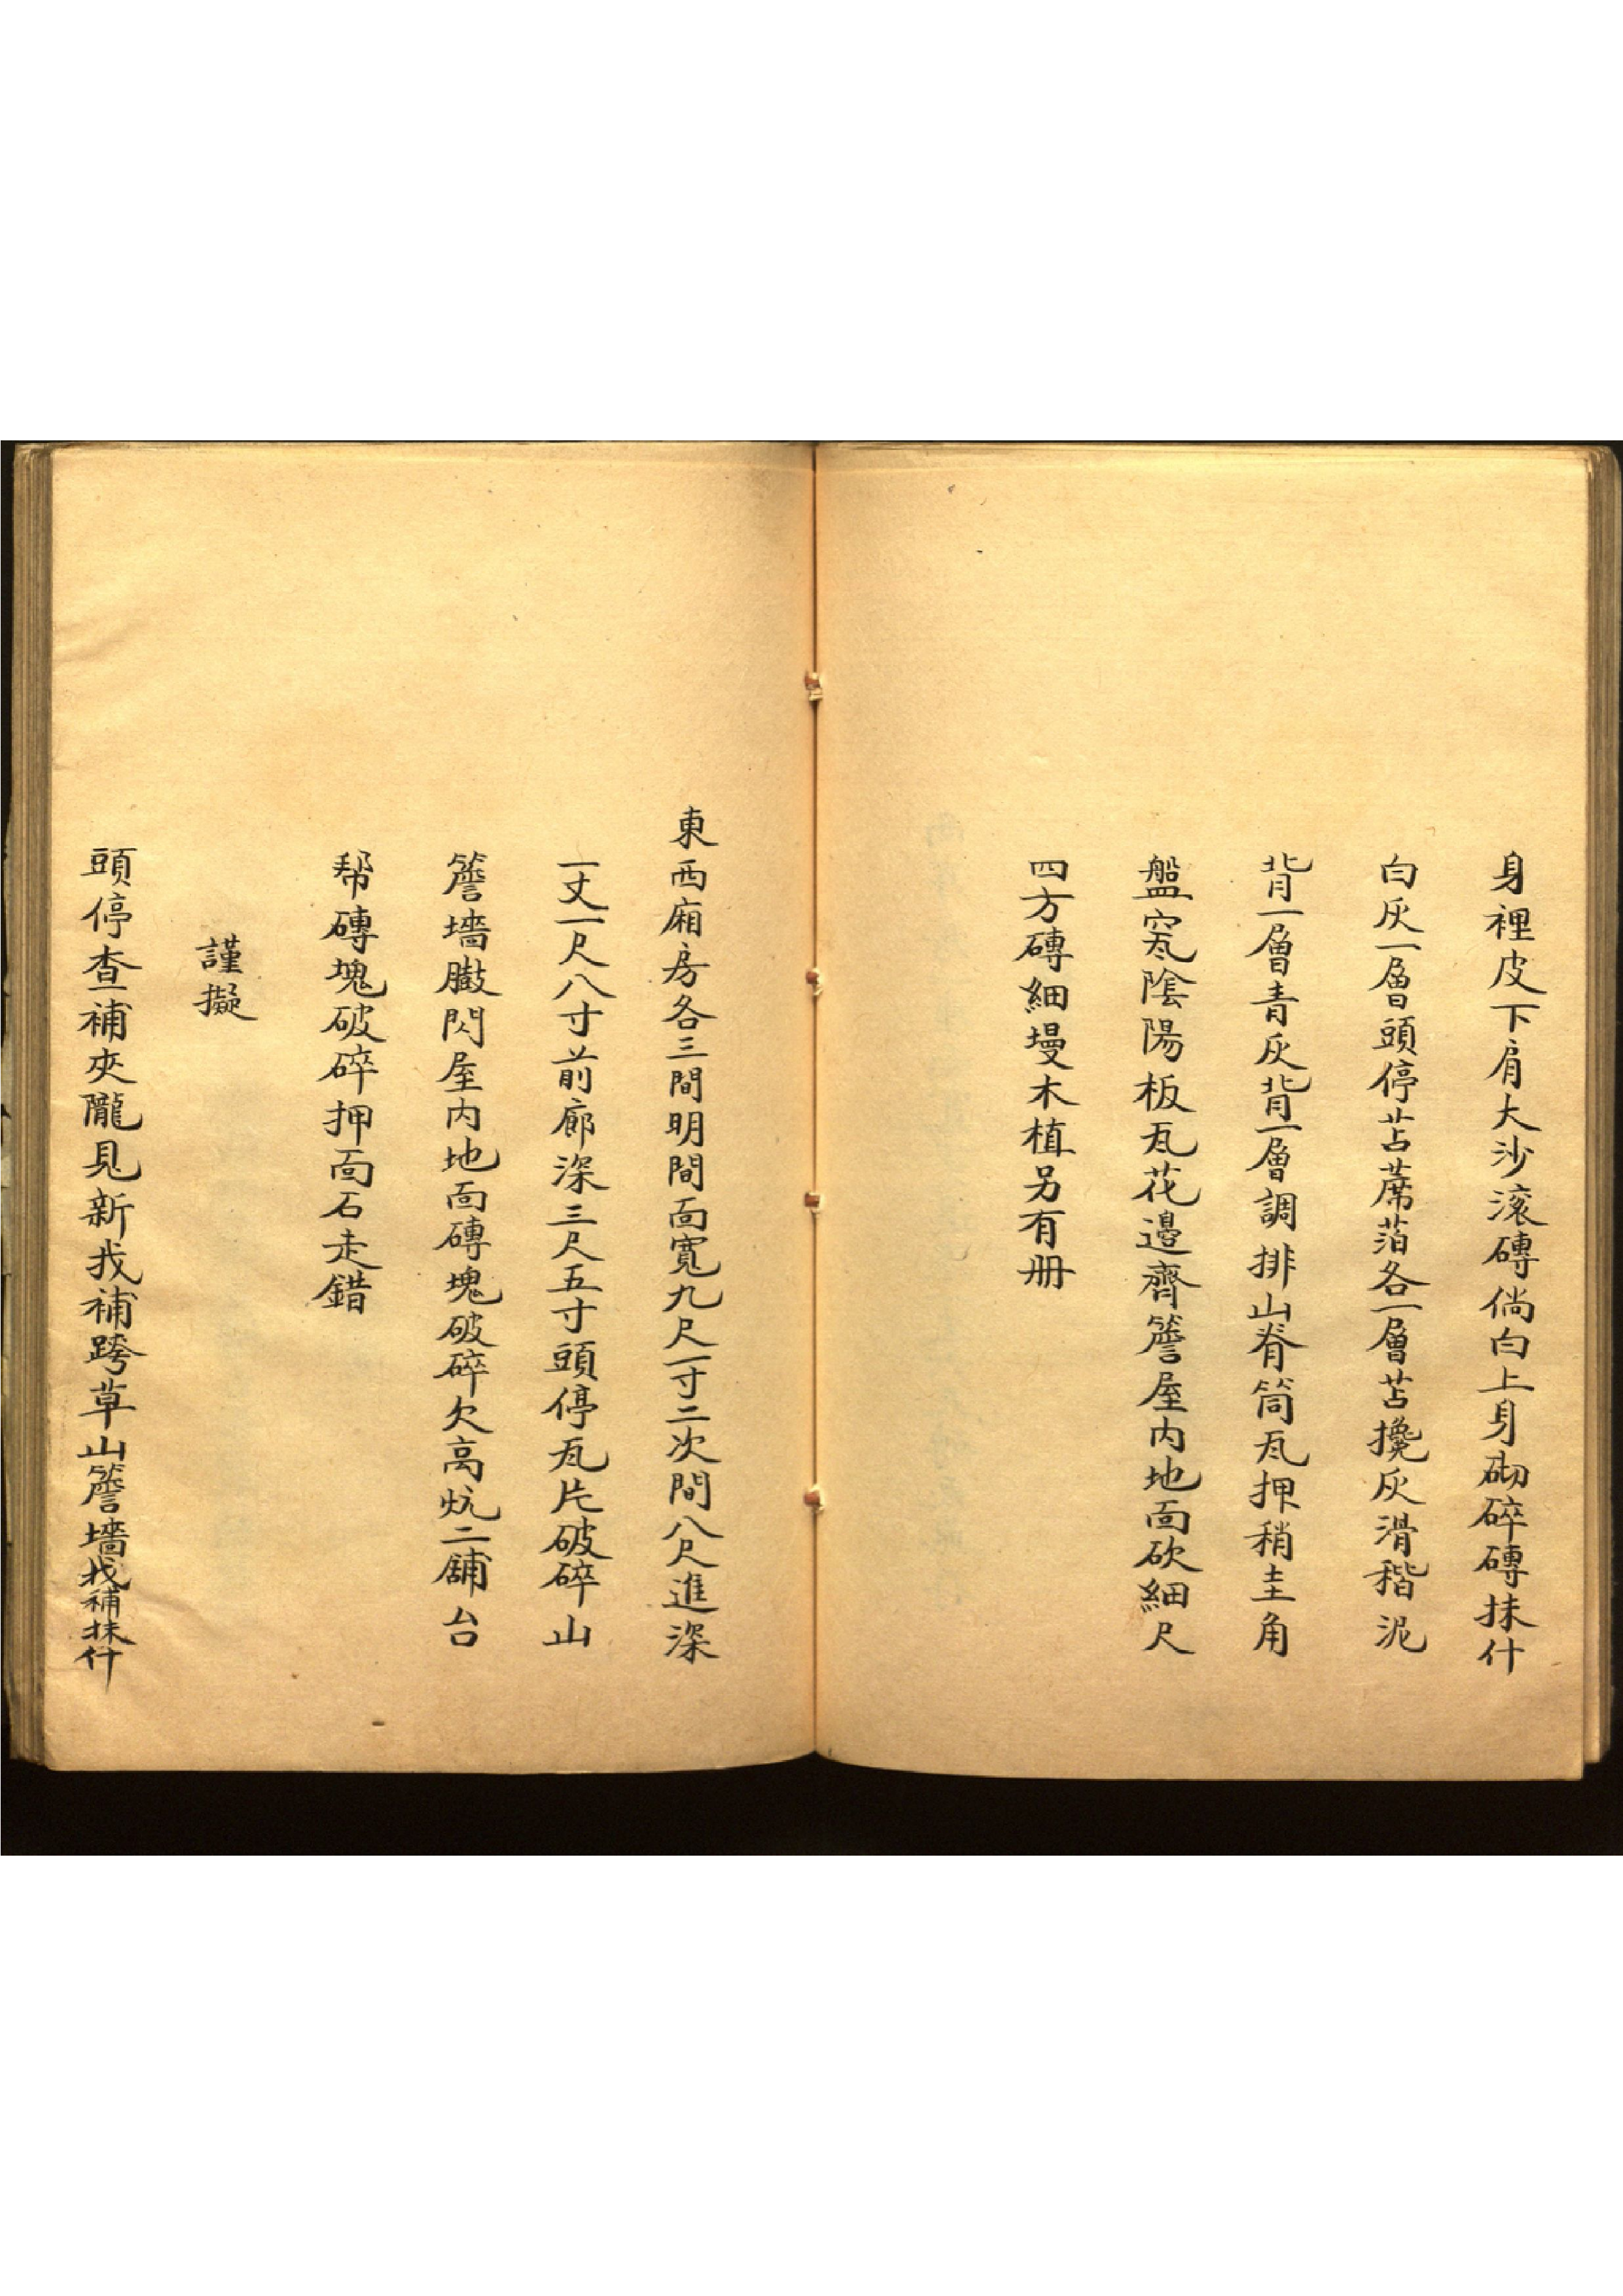 身裡皮下肩大沙滚磚倘白上身砌碎磚抹什
白灰一層頭停苫蓆箔各一層苫攙灰滑稭泥
背一層青灰背一層調排山脊筒瓦押稍土角
盤窝瓦陰陽板瓦花邊齊簷屋内地面砍細尺
四方磚細墁木植另有册
東西廂房各三間明間面寬九尺一寸二次間八尺進深
一丈一尺八寸前廊深三尺五寸頭停瓦片破碎山
簷墻臌閃屋内地面磚塊破碎欠高炕二舖台
帮磚塊破碎押面石走錯
謹擬
頭停查補夾隴見新找補跨草山簷墻找補抹什